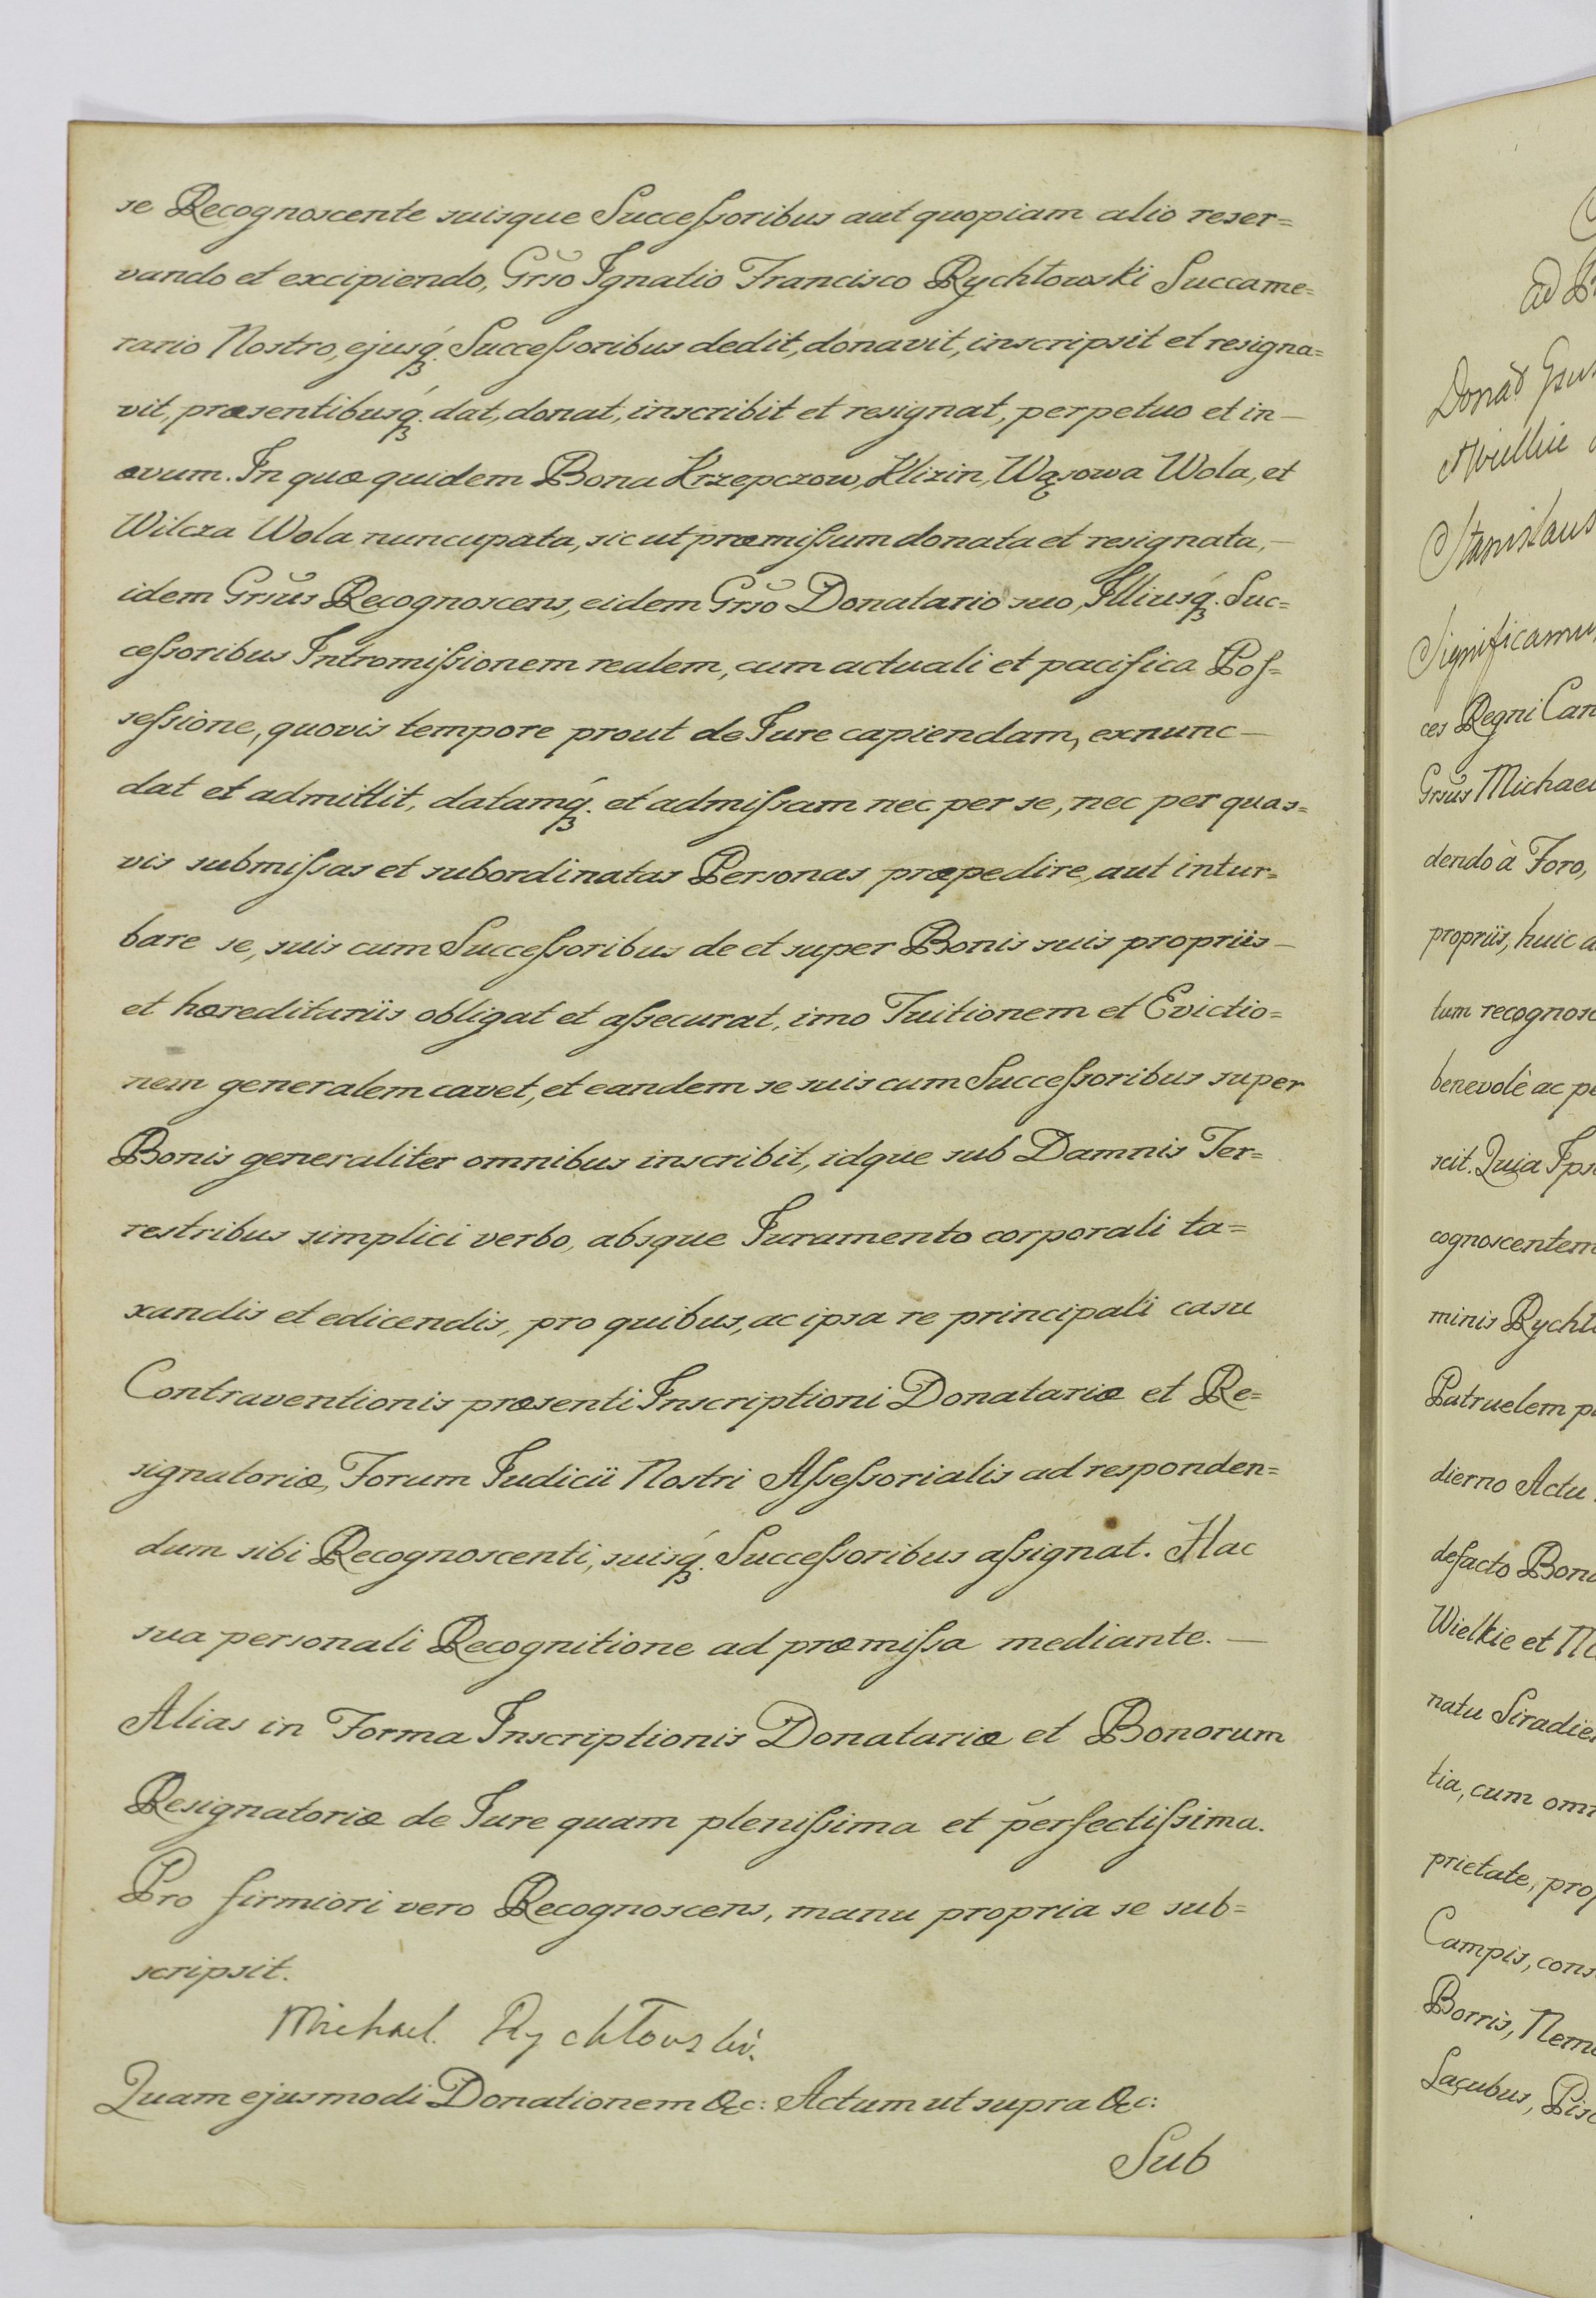 se Recognoscente suisque Successoribus aut quopiam alio reser=
vando et excipiendo, Grso Ignatio Francisco Rychłowski Succame=
rario Nostro, ejusq́ꝫ. Successoribus dedit, donavit, inscripsit et resigna=
vit, præsentibusq́ꝫ. dat, donat, inscribit et resignat, perpetuo et in—
ævum. In quæ quidem Bona Krzepczow, Klizin, Wąsowa Wola, et
Wilcza Wola nuncupata, sic ut præmissum donata et resignata,—
idem Grsus Recognoscens, eidem Grso Donatario suo, Illiusq́ꝫ. Suc=
cessoribus Intromissionem realem, cum actuali et pacifica Pos=
sessione, quovis tempore prout de Jure capiendam, exnunc—
dat et admittit, datamq́ꝫ. et admissam nec per se, nec per quas=
vis submissas et subordinatas Personas præpedire, aut intur=
bare se, suis cum Successoribus de et super Bonis suis propriis—
et hæreditariis obligat et assecurat, imo Tuitionem et Evictio=
nem generalem cavet, et eandem se suis cum Successoribus super
Bonis generaliter omnibus inscribit, idque sub Damnis Ter=
restribus simplici verbo, absque Juramento corporali ta=
xandis et edicendis, pro quibus, ac ipsa re principali casu
Contraventionis præsenti Inscriptioni Donatariæ et Re=
signatoriæ, Forum Judicii Nostri Assessorialis ad responden=
dum sibi Recognoscenti, suisq́ꝫ. Successoribus assignat. Hac
sua personali Recognitione ad præmissa mediante.—
Alias in Forma Inscriptionis Donatariæ et Bonorum
Resignatoriæ de Jure quam plenissima et perfectissima.
Pro firmiori vero Recognoscens, manu propria se sub=
scripsit.
Michael Rychłowski
Quam ejusmodi Donationem &c: Actum ut supra &c:
Sub
Ad
Donat̃ Gsus
Stanislaus
Significamus
ces Regni
Grsus Michael
dendo à Foro,
propriis, huic
tum
benevolè ac
scit. Quia
cognoscentem
minis
Patruelem
dierno Actu
defacto
Wielkie et
natu
tia, cum
prietate,
Campis,
Borris,
Lacubus,